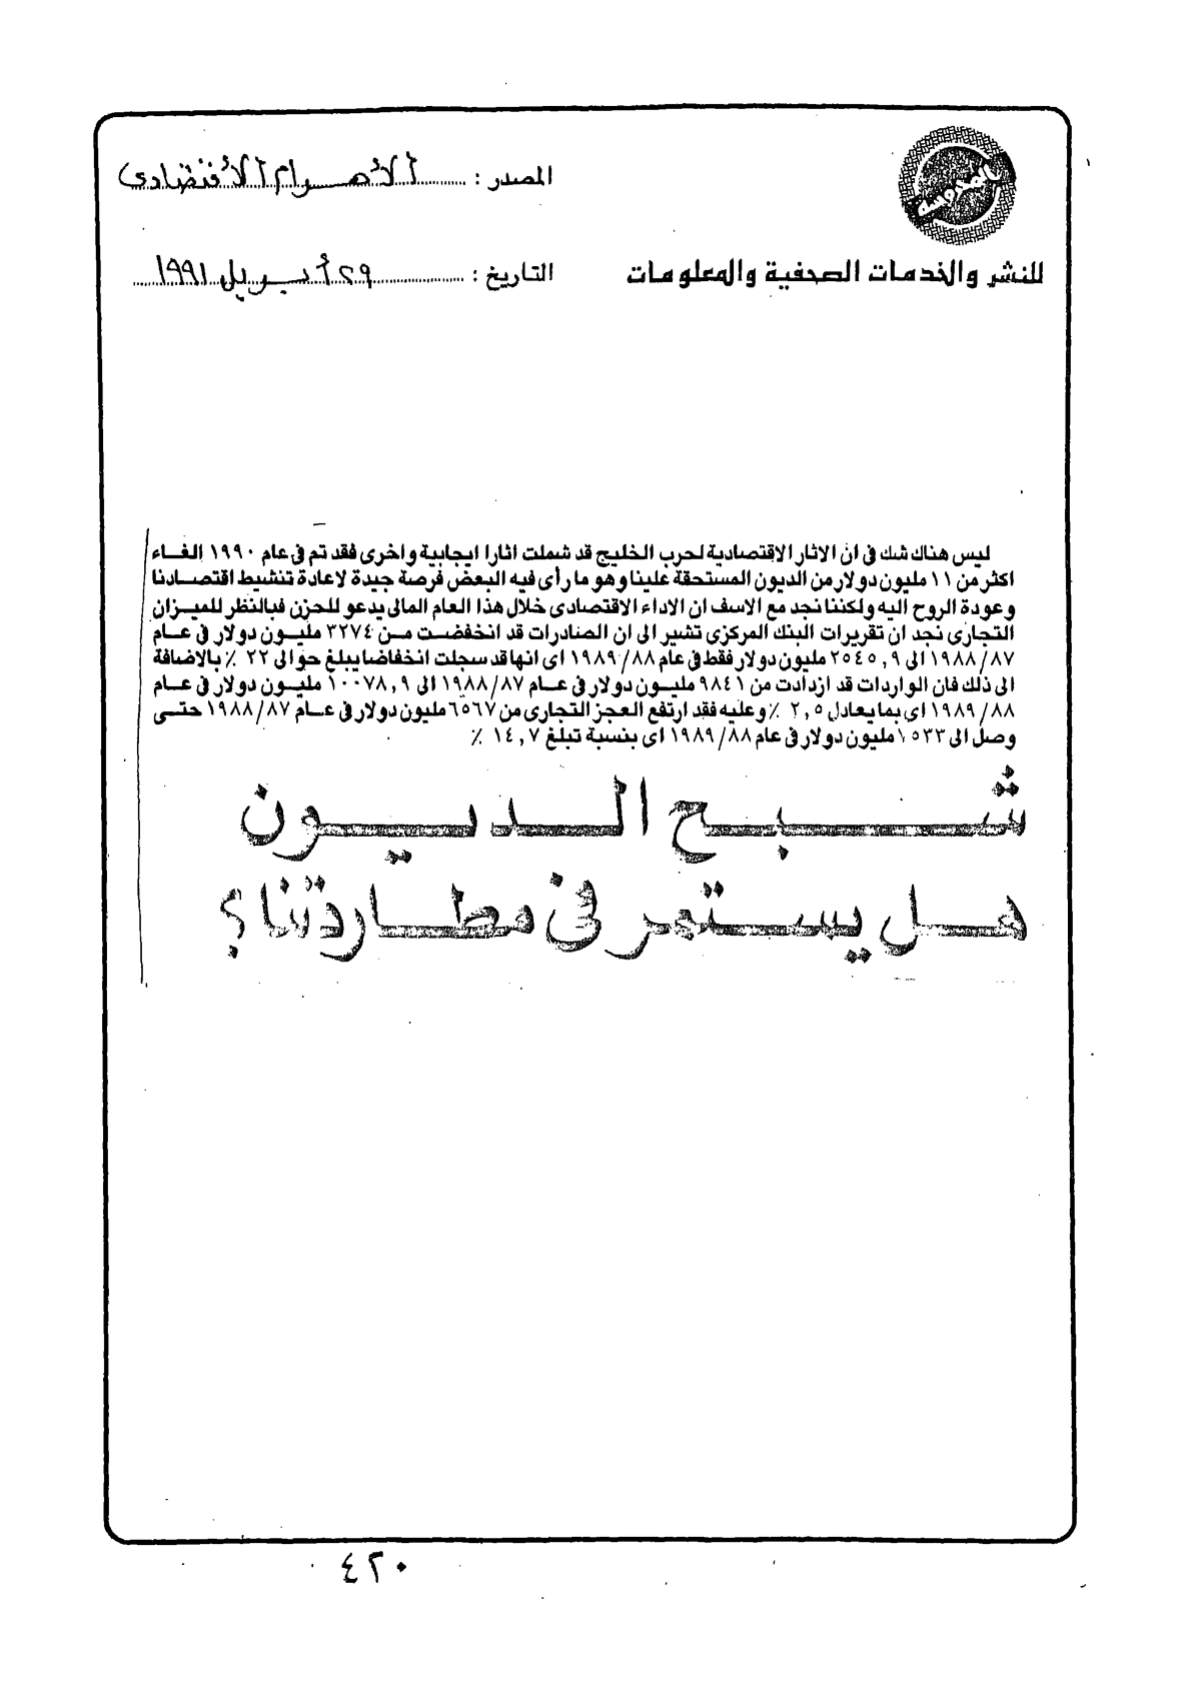 المحروسة
للنشر والخدمات الصحفية والمعلومات
المصدر : الأهرام الأقتصادى
التاريخ : ٢٩ أبريل ١٩٩١
ليس هناك شك فى ان الاثار الاقتصادية لحرب الخليج قد شملت اثارا ايجابية واخرى فقد تم فى عام ١٩٩٠ الغاء
اكثر من ١١ مليون دولار من الديون المستحقة علينا وهو ما رأى فيه البعض فرصة جيدة لاعادة تنشيط اقتصادنا
وعودة الروح اليه ولكننا نجد مع الاسف ان الاداء الاقتصادى خلال هذا العام المالى يدعو للحزن فبالنظر للميزان
التجارى نجد ان تقريرات البنك المركزى تشير الى ان الصادرات قد انخفضت من ٣٢٧٤ مليون دولار فى عام
١٩٨٨/٨٧ الى ٢٥٤٥,٩ مليون دولار فقط فى عام ١٩٨٩/٨٨ اى انها قد سجلت انخفاضا يبلغ حوالى ٢٢ ٪ بالاضافة
الى ذلك فان الواردات قد ازدادت من ٩٨٤١ مليون دولار فى عام ١٩٨٨/٨٧ الى ١٠٠٧٨,٩ مليون دولار فى عام
١٩٨٩/٨٨ اى بما يعادل ٢,٥ ٪ وعليه فقد ارتفع العجز التجارى من ٦٥٦٧ مليون دولار فى عام ١٩٨٨/٨٧ حتى
وصل الى ١٥٣٣ مليون دولار فى عام ١٩٨٩/٨٨ اى بنسبة تبلغ ١٤,٧ ٪
شبح الديون
هل يستمر فى مطاردتنا؟
٤٢٠